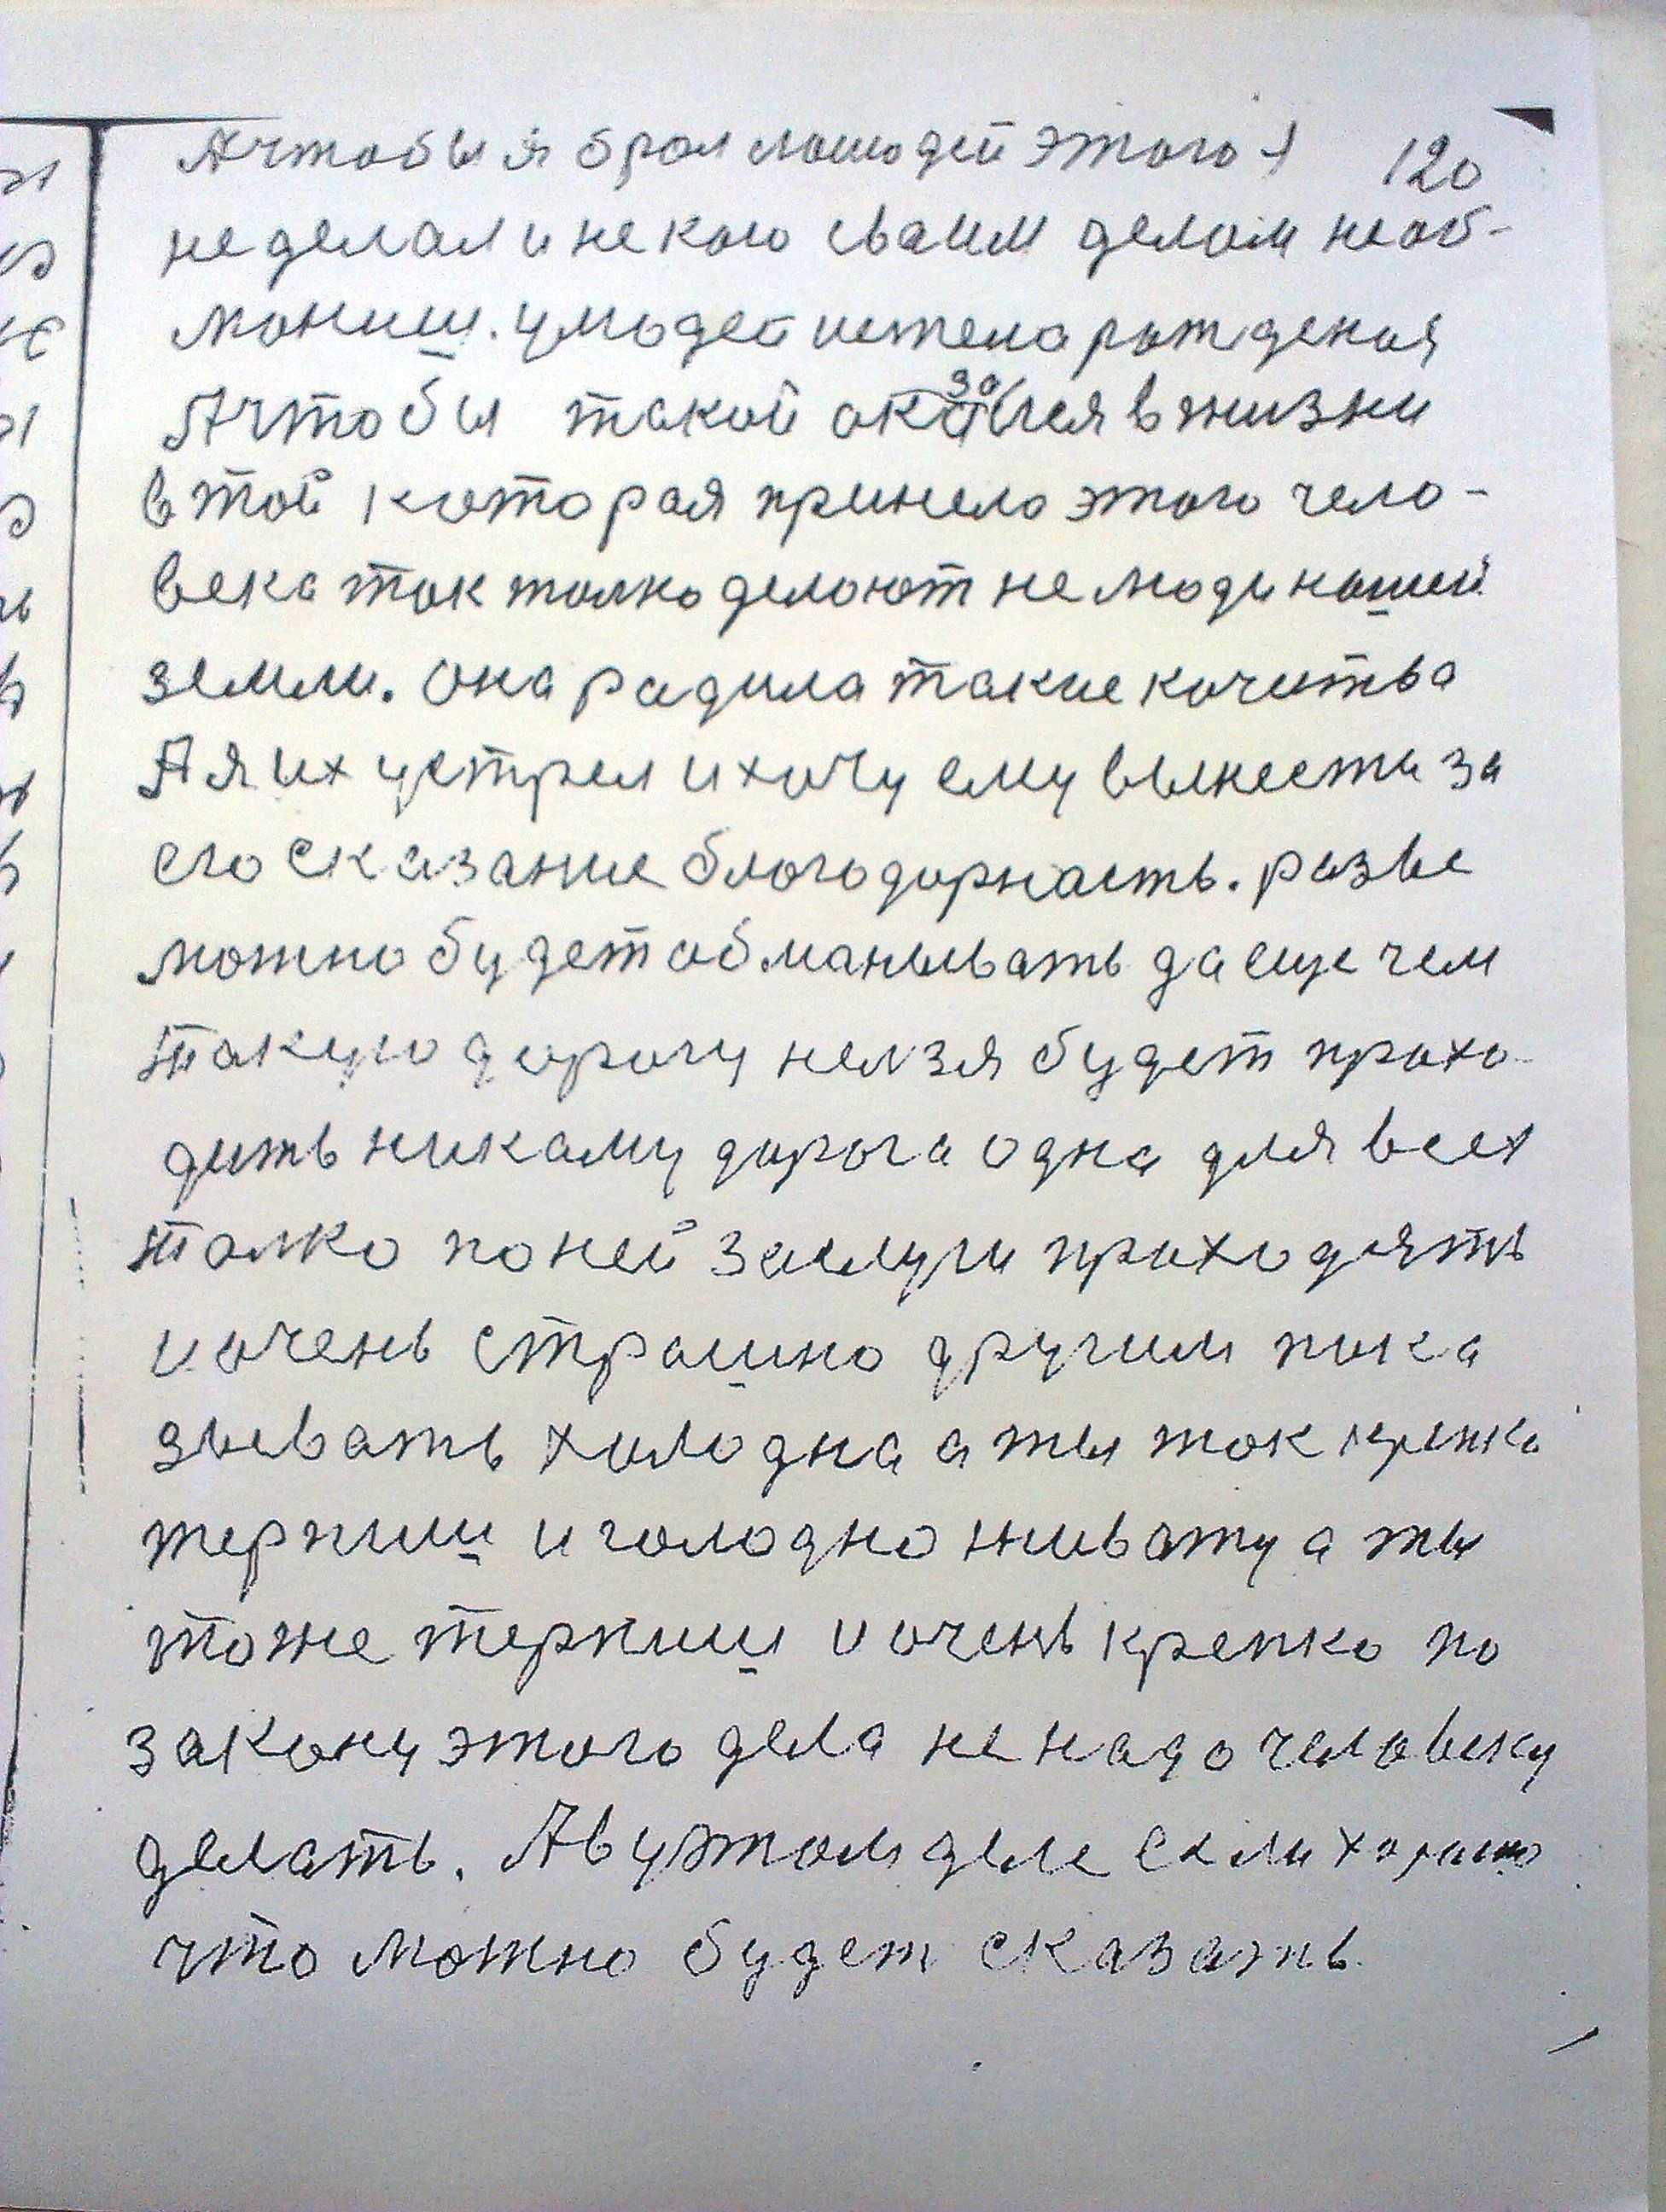 120
А чтобы я брал людей этого я
не делал и не кого сваим делом необ-
маниш. у людей истело рождения
А чтобы такой оказался в жизни
в той которая принело этого чело-
века так толко делоют не люди нашей
земли. она радила такие качитва
А я их устрел и хочу ему вынести за
его сказание благодарнасть. разве
можно будет обманывать да еще чем
такую дорогу нелзя будет прохо-
дить никаму дорога одна для всех
толко по ней заслуги проходять
и очень страшно другим пока
зывать холодна а ты так крепко
терпиш и голодно животу а ты
тоже терпиш и очень крепко по
закону этого дела не надо человеку
делать. А в уэтом деле если хорошо
что можно будет сказать.